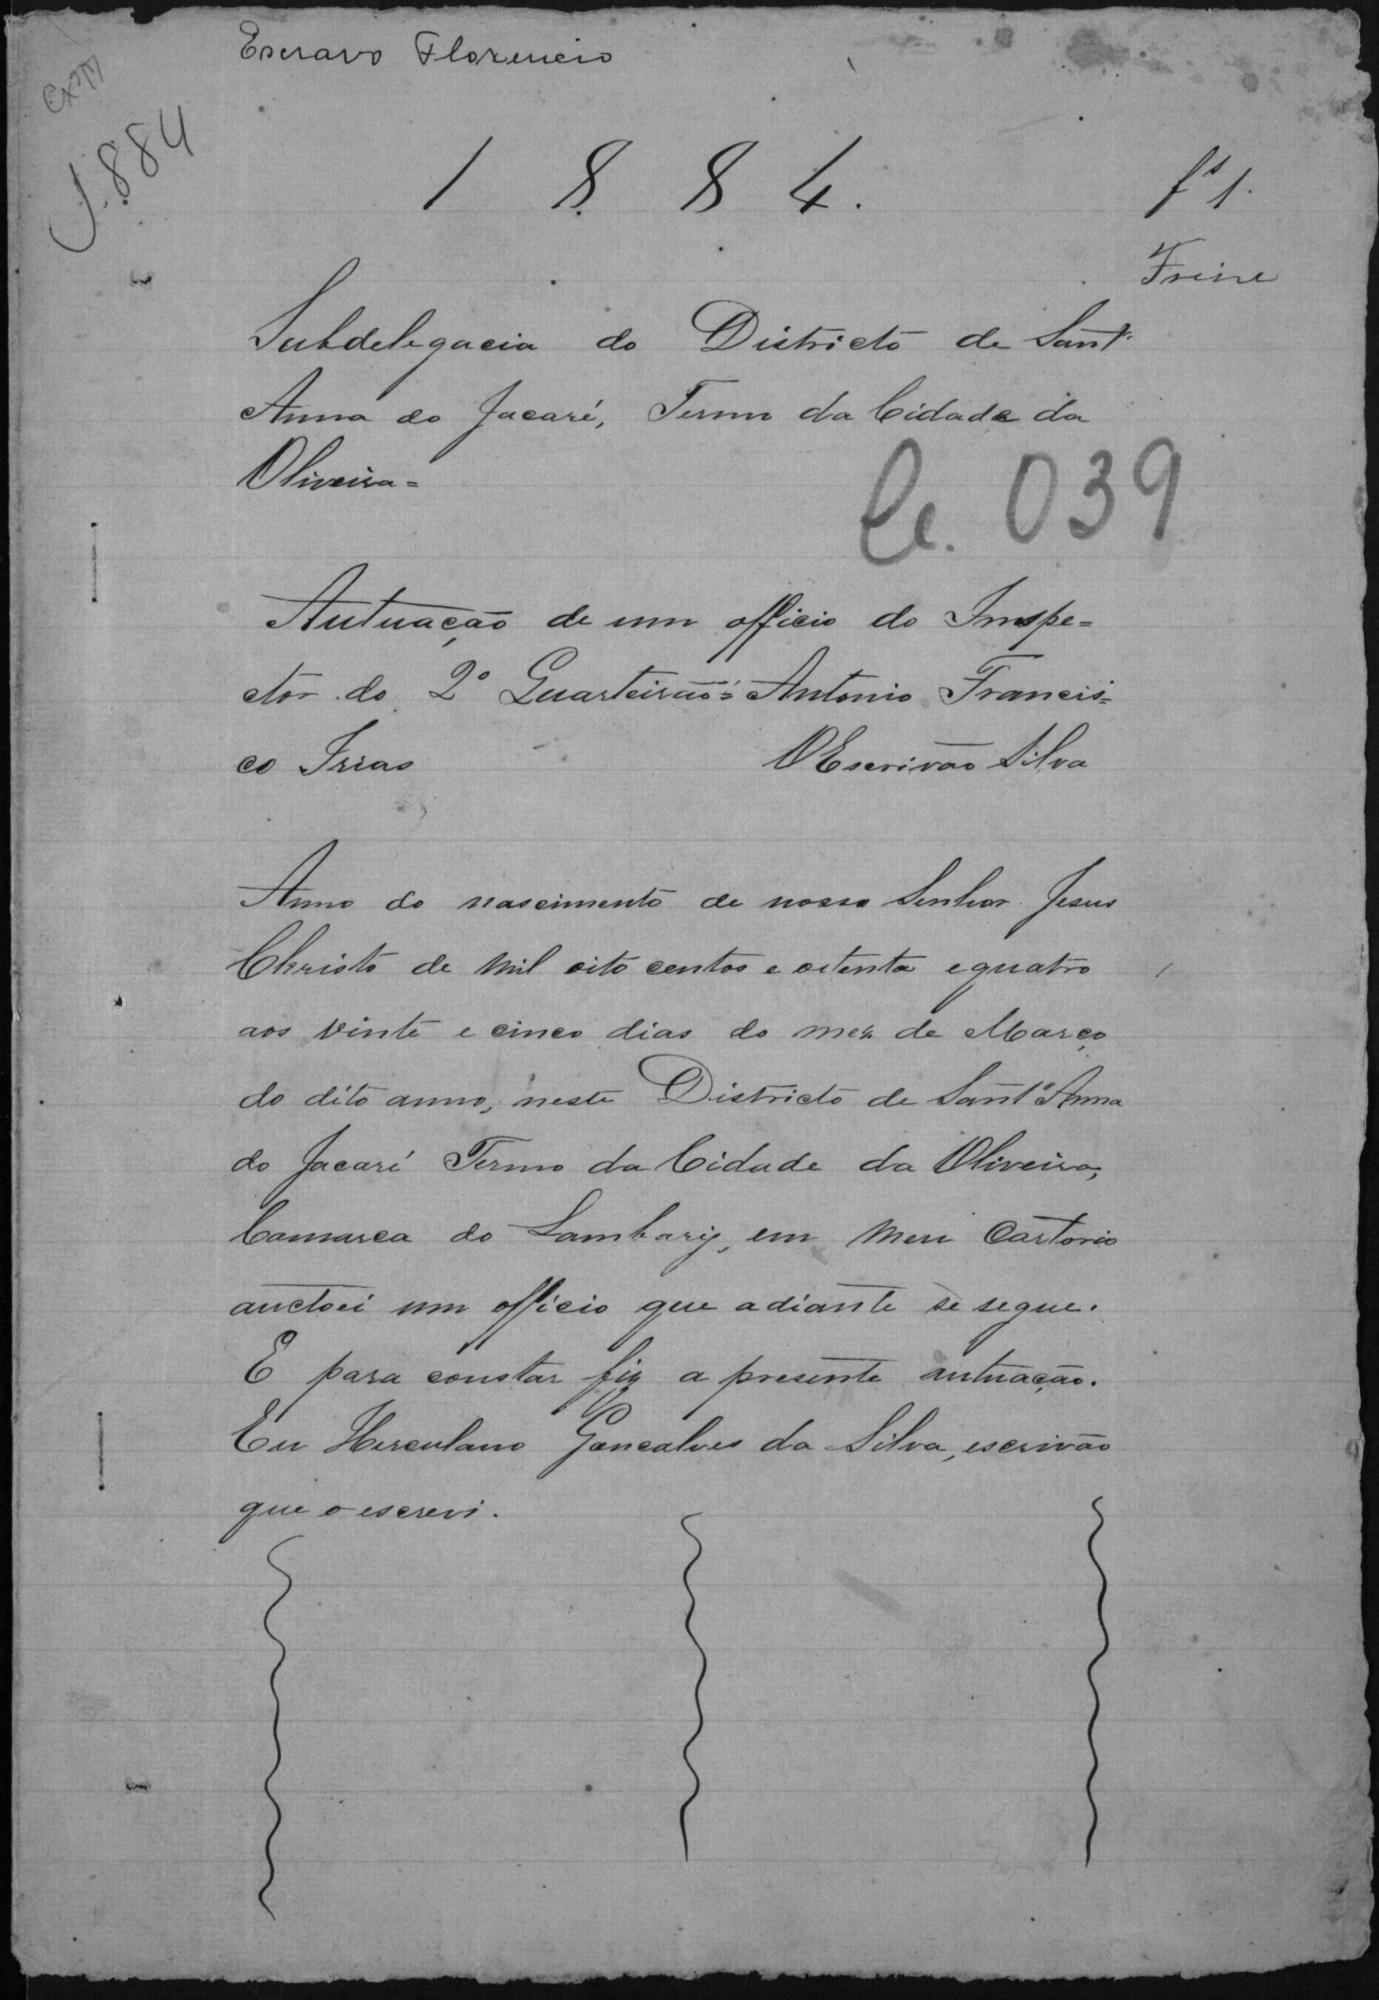 Escravo Florencio
1884
1884.
fs 1.
Freire
Subdelegacia do Districto de Sant'
Anna do Jacaré, Termo da Cidade da
Oliveira=
C. 039
Autuação de um officio do Inspe=
ctor do 2º Quarteirão= Antonio Francis=
co Irias
O Escrivão Silva
Anno do nascimento de nosso Senhor Jesus
Christo de mil oito centos e oitenta e quatro
aos vinte e cinco dias do mez de Março
do dito anno, neste Districto de Sant'Anna
do Jacaré Termo da Cidade da Oliveira,
Comarca do Lambary, em meu Cartorio
auctoei um officio que adiante se segue.
E para constar fiz a presente autuação.
Eu Herculano Gonçalves da Silva, escrivão
que o escrevi.